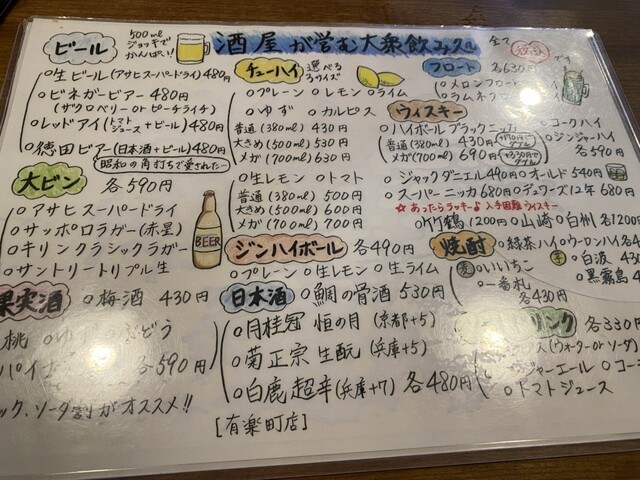 酒屋が営む大衆飲
全て
ビール
500ml
ジョッキで
かんぱい!
○生ビール(アサヒスーパードライ)480円
○ビネガービアー480円
(ザクロベリー or ピーチライチ)
○レッドアイ(トマトジュース+ビール)480円
○徳田ビアー(日本酒+ビール)480円
昭和の角打ちで愛された…
大ビン 各590円
○アサヒスーパードライ
○サッポロラガー(赤星)
○キリンクラシックラガー
○サントリートリプル生
BEER
果実酒 ○梅酒 430円
桃
各590円
ソーダ割がオススメ!!
チューハイ
選べる
3サイズ
○プレーン ○レモン ○ライム
○ゆず ○カルピス
普通(380ml)430円
大きめ(500ml)530円
メガ(700ml)630円
○生レモン ○トマト
普通(380ml)500円
大きめ(500ml)600円
メガ(700ml)700円
ジンハイボール 各490円
○プレーン ○生レモン ○生ライム
日本酒 ○鯛の骨酒 530円
○月桂冠 恒の月(京都+5)
○菊正宗 生酛(兵庫+5)
○白鹿 超辛(兵庫+7)各480円
[有楽町店]
フロート 各630円
○メロンフロート
ウイスキー
○ハイボールブラックニッカ
普通(380ml)430円
メガ(700ml)690円
+330円でダブル
○コークハイ
○ジンジャーハイ
各590円
○ジャックダニエル490円 ○オールド540円
○スーパーニッカ680円 ○デュワーズ12年680円
☆あったらラッキー♪入手困難ウイスキー
○竹鶴1200円 ○山崎 ○白州 各1200
焼酎 ○緑茶ハイ ○ウーロンハイ 各4
麦 ○いいちこ
○一番札
各430円
芋 ○白波 430
○黒霧島
リンク 各330
(ウォーターorソーダ)
ジャーエール ○コー
○トマトジュース